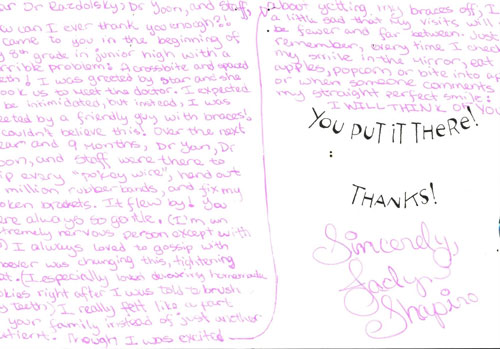 ar Dr Razdolsky, Dr Yoon, and Staff,
ow can I ever thank you enough?!
came to you in the beginning of
y 8th grade in junior high with a
rrible problem: A crossbite and spaced
eeth! I was greeted by star and she
ook us to meet the doctor. I expected
be intimidated, but instead, I was
eeted by a friendly guy with braces!
couldn't believe this! Over the next
ear and 9 months, Dr Yan, Dr
oon, and staff were there to
ip every "pokey wire", hand out
million rubber bands, and fix my
oken brackets. It flew by! You
ere always so gentle. (I'm an
tremely nervous person except with
) I always loved to gossip with
oever was changing this, tightening
at. (I especially loved devouring homemade
okies right after I was told to brush
y teeth) I really felt like a part
your family instead of just another
atient. Though I was excited
about getting my braces off, I
a little sad that my visits will
be fewer and far between. Just
remember, every time I check
my smile in the mirror, eat
apples, popcorn or bite into a
or when someone comments
my straight perfect smile:
I WILL THINK OF YOU
YOU PUT IT THERE!
THANKS!
Sincerely,
Jaclyn
Shapiro